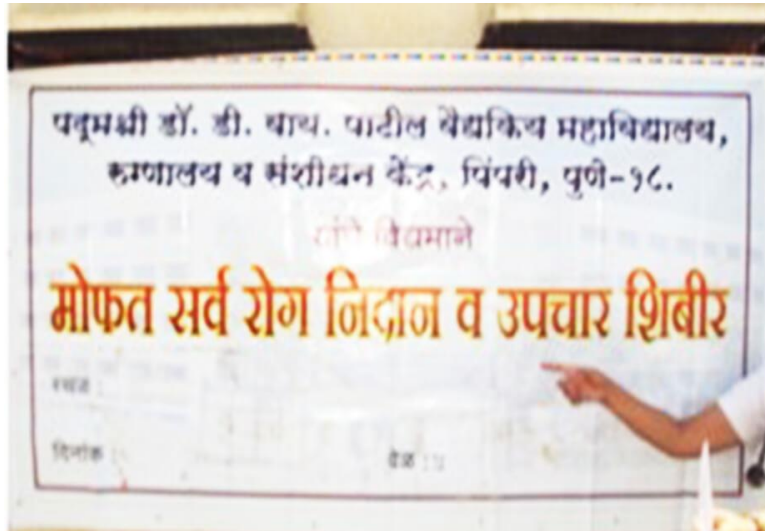 पद्मश्री डॉ. डी. वाय. पाटील वैद्यकिय महाविद्यालय,
रुग्णालय व संशोधन केंद्र, पिंपरी, पुणे-१८.
यांचे विद्यमाने
मोफत सर्व रोग निदान व उपचार शिबीर
स्थळ :
दिनांक :
वेळ :